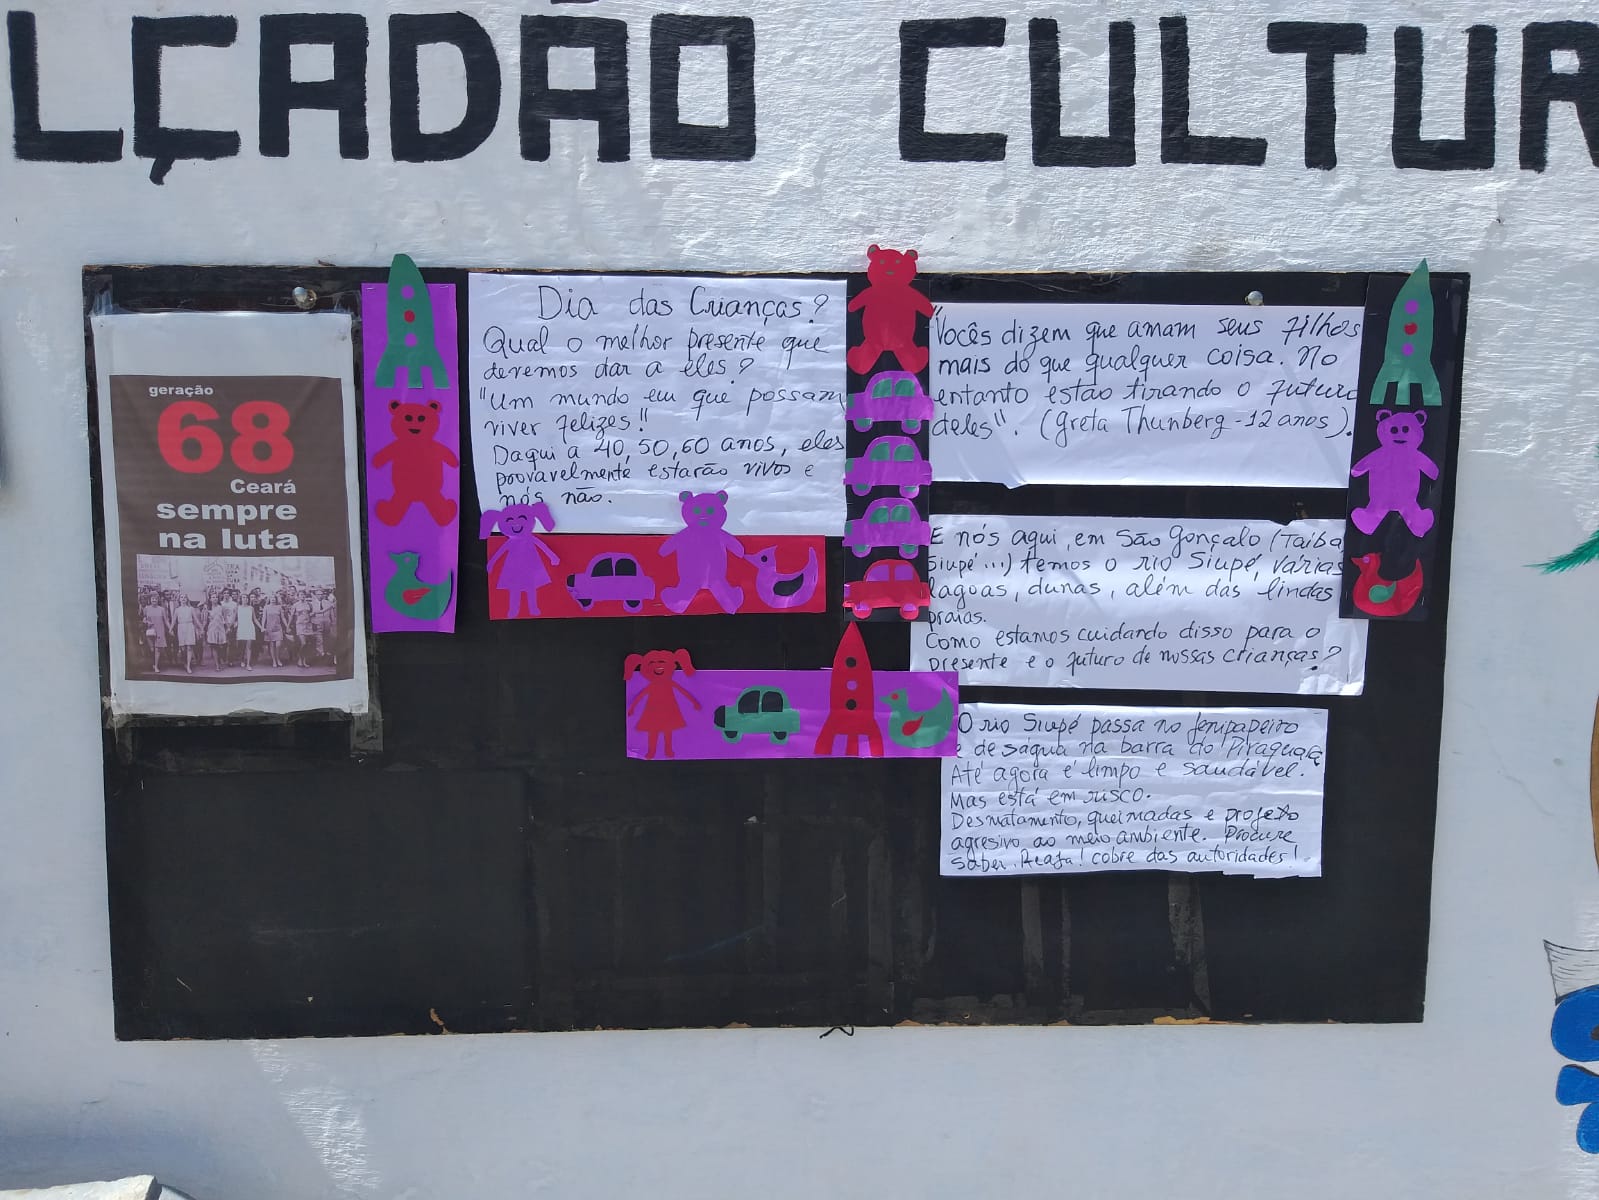 LÇADÃO CULTUR
geração
68
Ceará
sempre
na luta
Dia das Crianças?
Qual o melhor presente que
devemos dar a eles?
"Um mundo em que possam
viver felizes!"
Daqui a 40, 50, 60 anos, eles
provavelmente estarão vivos e
nós não.
"Vocês dizem que amam seus filhos
mais do que qualquer coisa. No
entanto estão tirando o futuro
deles". (Greta Thunberg - 12 anos).
E nós aqui, em São Gonçalo (Taíba,
Siupé...) temos o rio Siupé, várias
lagoas, dunas, além das lindas
praias.
Como estamos cuidando disso para o
presente e o futuro de nossas crianças?
O rio Siupé passa no Jenipapeiro
e deságua na barra do
Até agora é limpo e saudável.
Mas está em risco.
Desmatamento, queimadas e projeto
agresivo ao meio ambiente. Procure
saber. Reaja! cobre das autoridades!